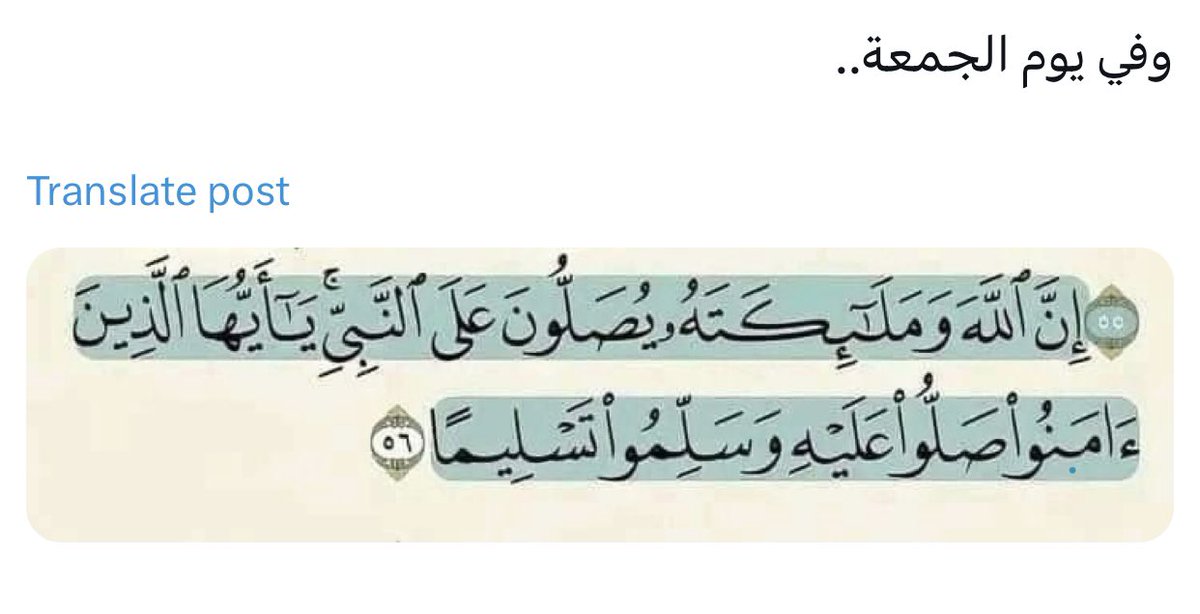 وفي يوم الجمعة..
Translate post
٥٥ إِنَّ ٱللَّهَ وَمَلَـٰٓئِكَتَهُۥ يُصَلُّونَ عَلَى ٱلنَّبِىِّ ۚ يَـٰٓأَيُّهَا ٱلَّذِينَ
ءَامَنُوا۟ صَلُّوا۟ عَلَيْهِ وَسَلِّمُوا۟ تَسْلِيمًا ٥٦